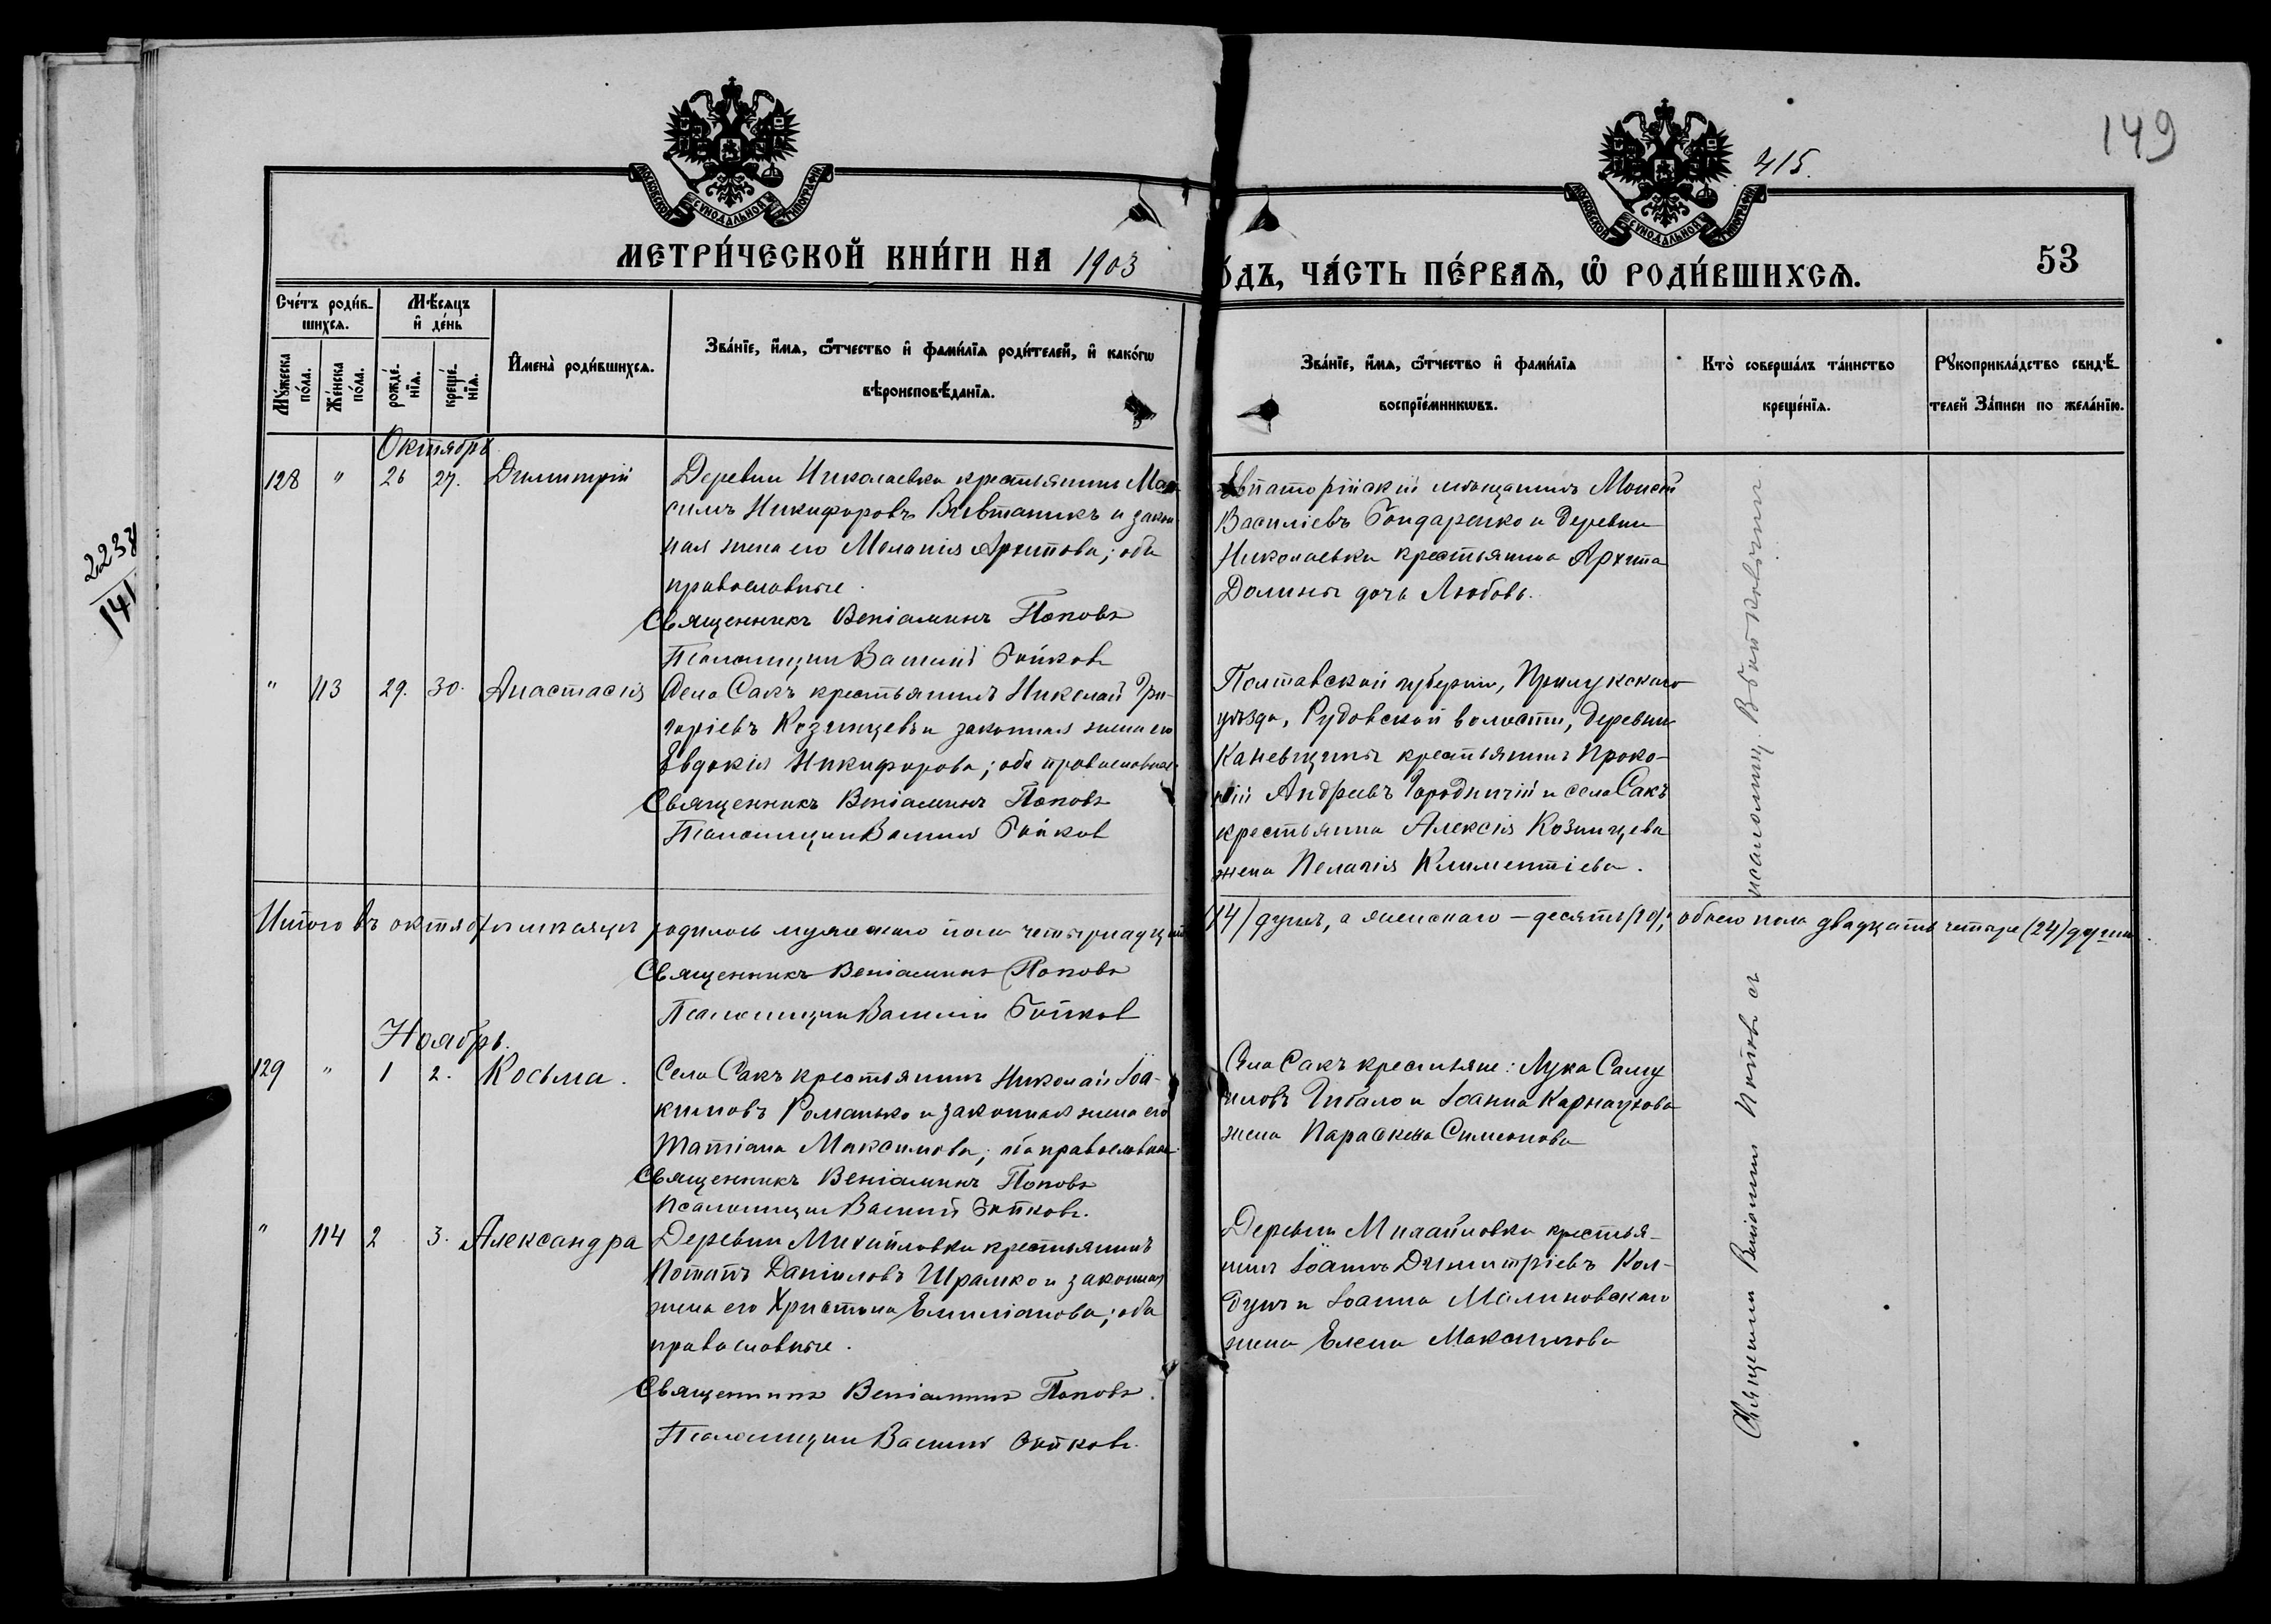 149
415.
МОСКОВСКОЙ СУНОДАЛЬНОЙ ТИПОГРАФІИ
МОСКОВСКОЙ СУНОДАЛЬНОЙ ТИПОГРАФІИ
МЕТРИ́ЧЕСКОЙ КНИ́ГИ НА 1903
О́ДЪ, ЧА́СТЬ ПЕ́РВАЯ, Ѡ РОДИ́ВШИХСЯ.
53
Сче́тъ роди́в-
шихся.
Мѣ́сяцъ
и де́нь
Мꙋ́жеска
по́ла.
Же́нска
по́ла.
рожде́-
нїя.
креще́-
нїя.
Имена̀ роди́вшихся.
Зва́нїе, и́мя, ѻ́тчество и фами́лїя роди́телей, и како́гѡ
вѣроисповѣ́данїя.
Зва́нїе, и́мя, ѻ́тчество и фами́лїя
воспрїе́мникѡвъ.
Кто̀ соверша́лъ та́инство
креще́нїя.
Рꙋкоприкла́дство свидѣ́-
телей за́писи по жела́нїю.
2238
141
Октябрь
128 " 26 27. Димитрій
Деревни Николаевки крестьянинъ Мак-
симъ Никифоровъ Вивтаникъ и закон-
ная жена его Меланія Архипова; оба
православные.
Священникъ Веніаминъ Поповъ
Псаломщикъ Василій Бойковъ
Евпаторійскій мѣщанинъ Моисей
Василіевъ Бондаренко и деревни
Николаевки крестьянина Архипа
Долины дочь Любовь.
" 113 29. 30. Анастасія
Села Сакъ крестьянинъ Николай Гри-
горіевъ Козинцевъ и законная жена его
Евдокія Никифорова; оба православные.
Священникъ Веніаминъ Поповъ
Псаломщикъ Василій Бойков
Полтавской губерніи, Прилукскаго
уѣзда, Рудовской волости, деревни
Каневщины крестьянинъ Проко-
пій Андреевъ Городничій и села Сакъ
крестьянина Алексія Козинцева
жена Пелагія Климентіева.
Итого въ октябрѣ мѣсяцѣ родилось мужескаго пола четырнадцать
(14) душъ, а женскаго — десять (10); обоего пола двадцать четыре (24) души.
Священникъ Веніаминъ Поповъ
Псаломщикъ Василій Бойков
Ноябрь.
129 " 1 2. Косьма.
Села Сакъ крестьянинъ Николай Іоа-
кимовъ Романько и законная жена его
Татіана Максимова; оба православные.
Священникъ Веніаминъ Поповъ
Псаломщикъ Василій Бойковъ.
Села Сакъ крестьяне: Лука Саму-
иловъ Гитало и Іоанна Карнаухова
жена Параскева Симеонова
" 114 2 3. Александра
Деревни Михайловки крестьянинъ
Потапъ Даніиловъ Шрамко и законная
жена его Христина Емиліанова; оба
православные.
Священникъ Веніаминъ Поповъ.
Псаломщикъ Василій Бойковъ.
Деревни Михайловки крестья-
нинъ Іоаннъ Димитріевъ Кол-
дунъ и Іоанна Малиновскаго
жена Елена Максимова
Священникъ Веніаминъ Поповъ съ псаломщ. В. Бойковымъ